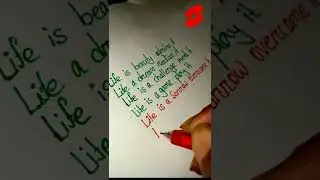 Life is beauty admire it
Life a dream realize it
Life is a challenge meet it
Life is a game play it
Life is a sorrow overcome it